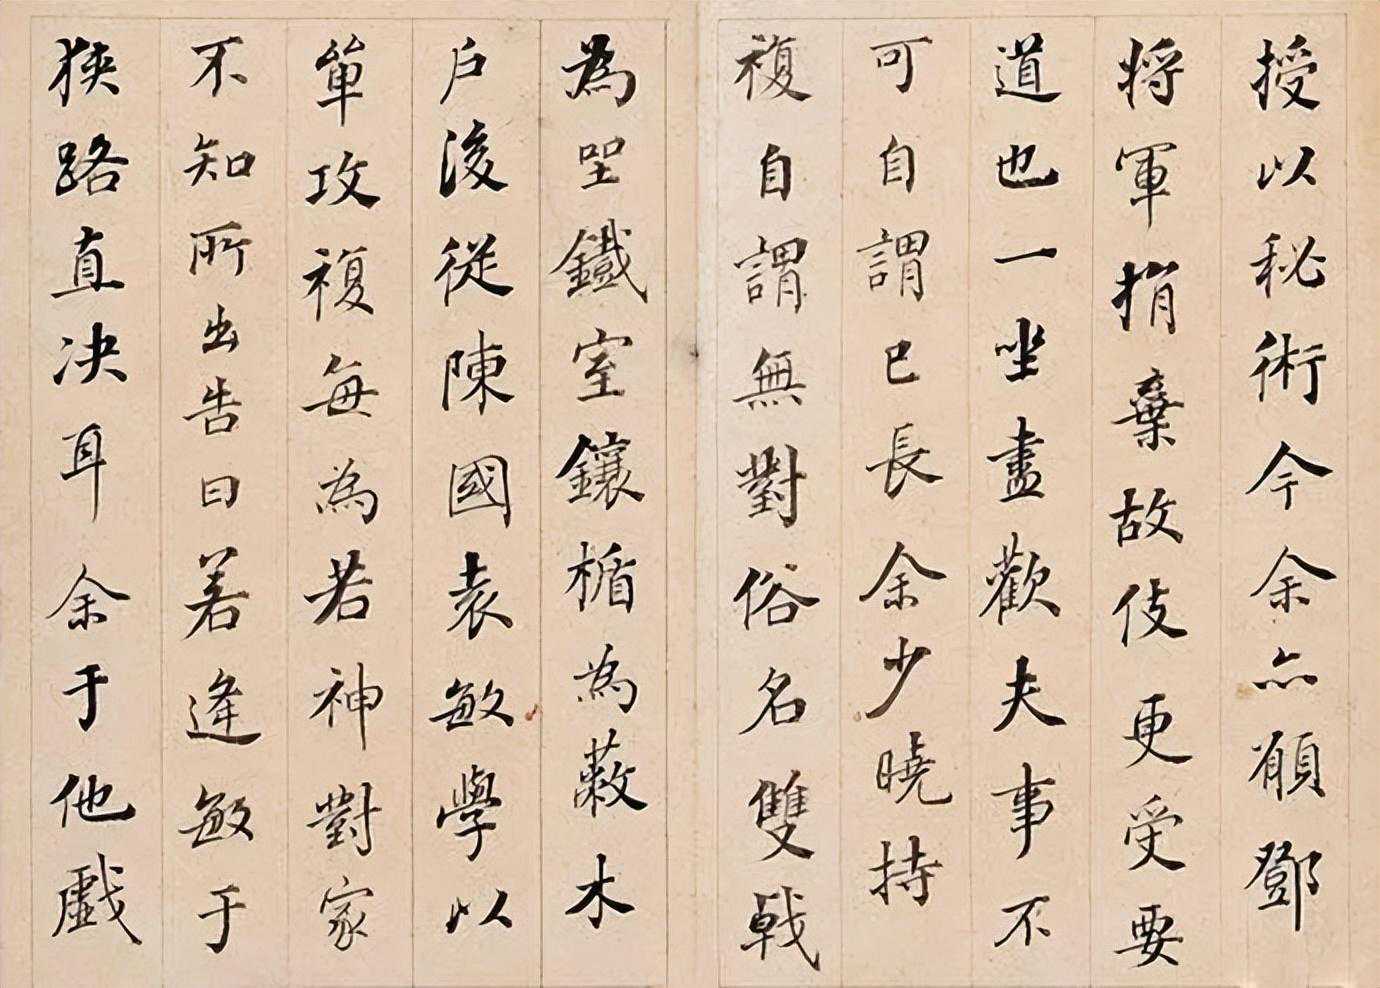 授以秘術今余亦願鄧
將軍捐棄故伎更受要
道也一坐盡歡夫事不
可自謂己長余少曉持
複自謂無對俗名雙戟
為坐鐵室鑲楯為蔽木
戶後從陳國袁敏學以
單攻複每為若神對家
不知所出告曰若逢敏于
狹路直决耳余于他戲